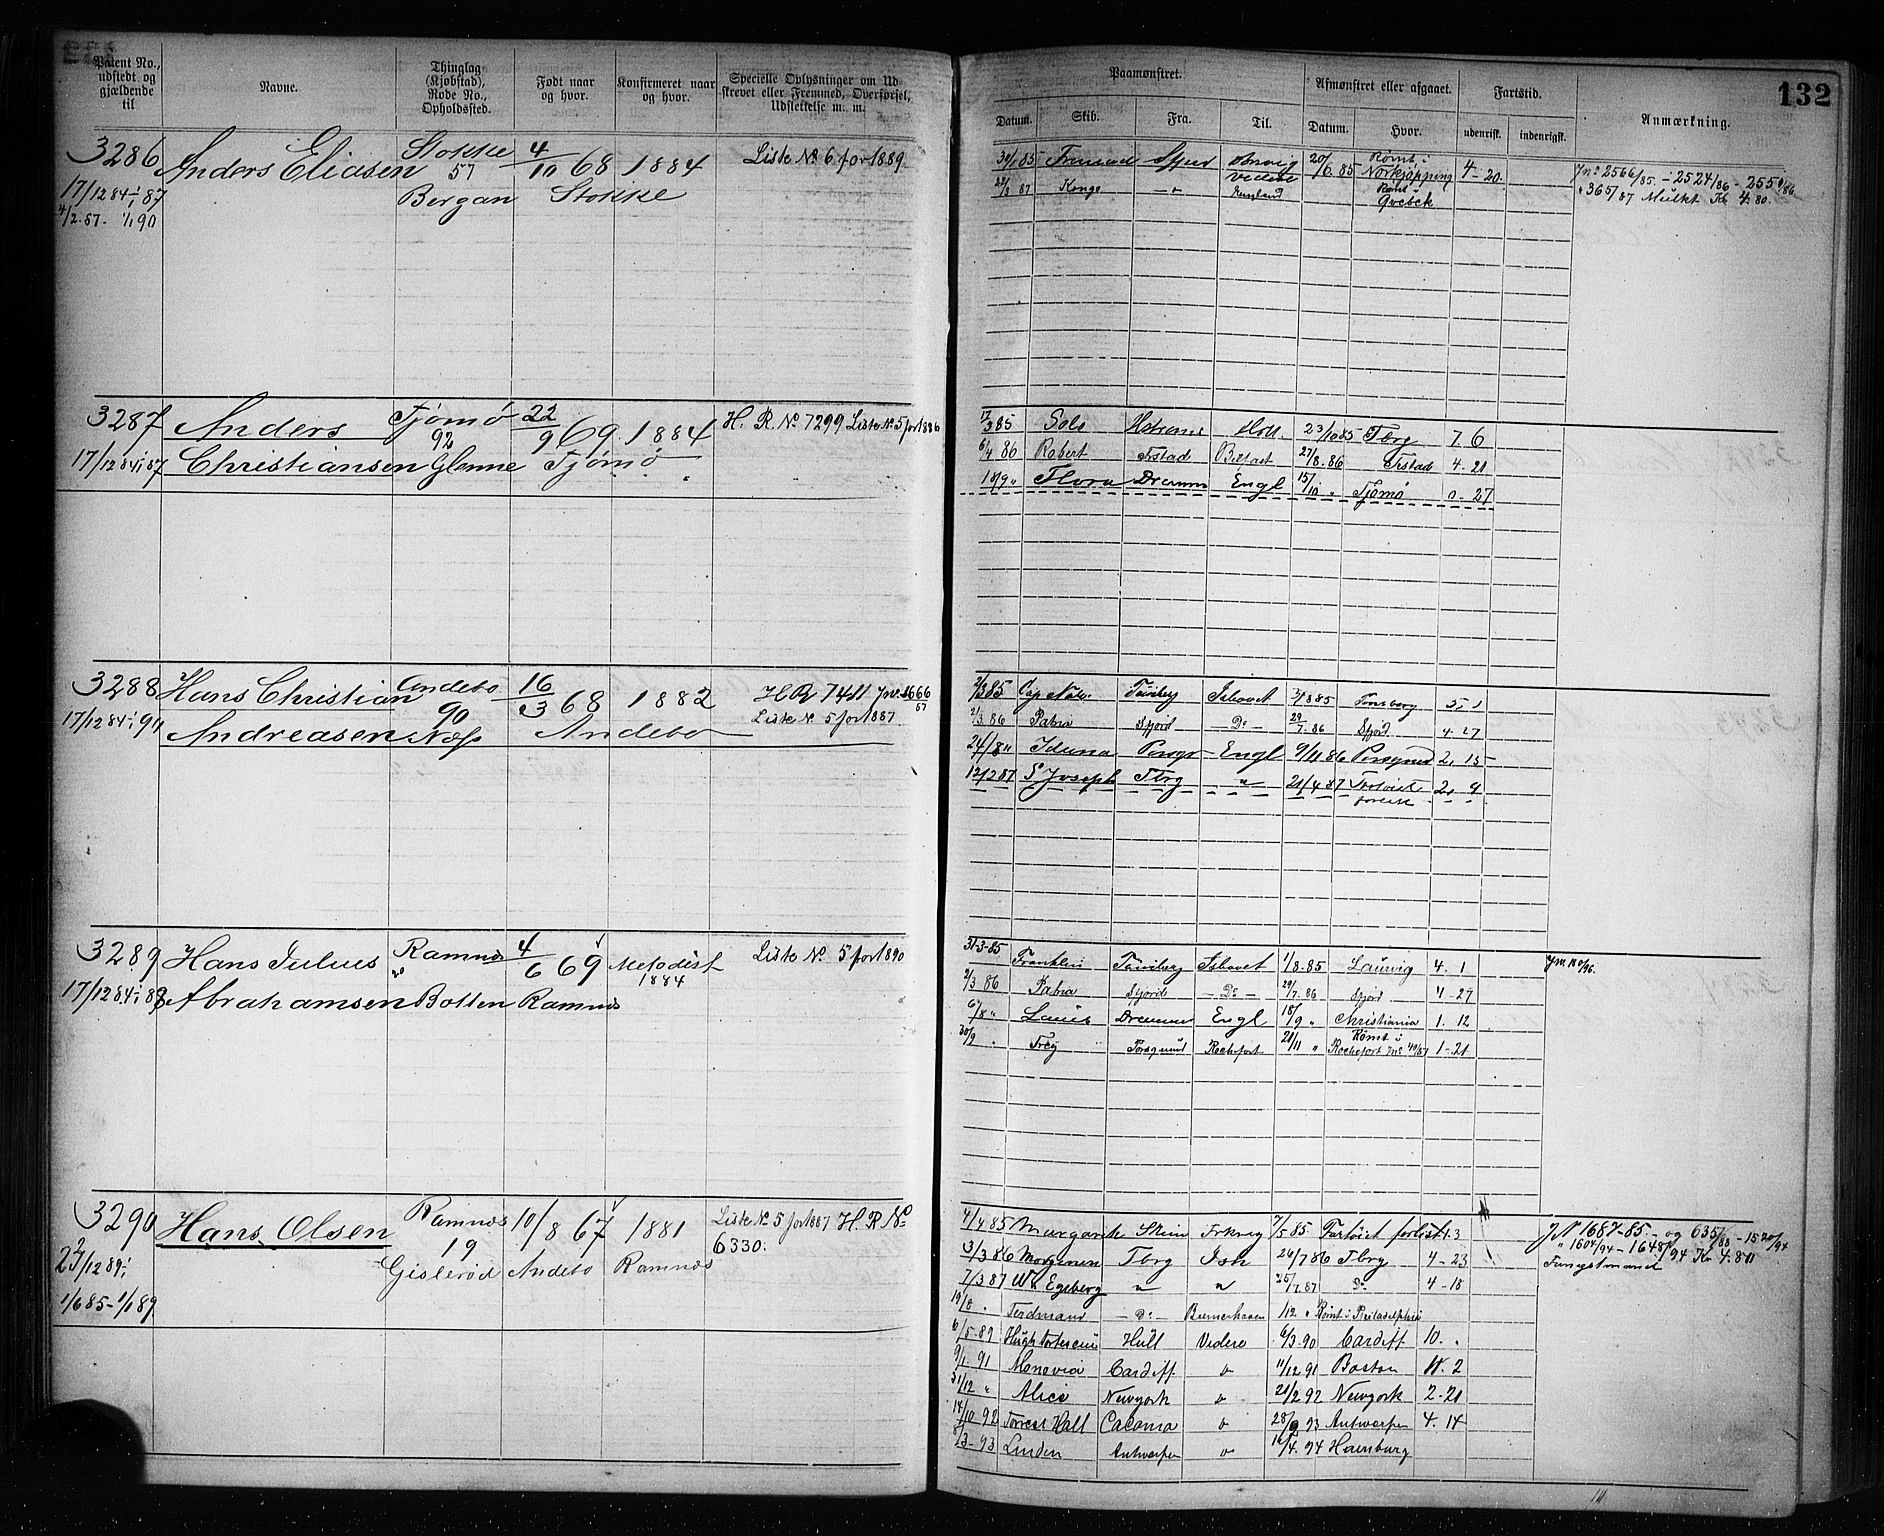 132
Patent No., udstedt og gjældende til
Navne.
Thinglag (Kjøbstad), Rode No., Opholdssted.
Født naar og hvor.
Konfirmeret naar og hvor.
Specielle Oplysninger om Udskrevet eller Fremmed, Overførsel, Udslettelse m. m.
Paamønstret.
Afmønstret eller afgaaet.
Fartstid.
Anmærkning.
Datum.
Skib.
Fra.
Til.
Datum.
Hvor.
udenrisk.
indenrigsk.
3286 Anders Eliasen Stokke 4/10 68 1884 Liste No 6 for 1889
57
17/12 84 i 87 Bergan Stokke
4/2 87 - 1/1 90
Sfjord 20/6 85 Rømt i Norkjøpping 4-20
22/3 87 Kongo England Rømt Qvebek
Jn° 2566/85 - 2524/86
365/87 Mulkt Kr 4.80.
3287 Anders Tjømø 22/9 69 1884 H. R. No 7299 Liste No 5 for 1886
92
17/12 84 i 87 Christiansen Glenne Tjømø
17/3 85 23/10 85 Tbrg 7. 6
6/4 86 Robert Frstad Belfast 27/8. 86 Frstad 4-21
18/9 " Flora Drammen Engl 15/10 " Tjømø 0-27
3288 Hans Christian Andebo 16/3 68 1882 H R 7411
90 Liste No 5 for 1887.
17/12 84 i 90 Andreasen Næs Andebo
2/3 85 Tønsberg Ishavet Tønsberg
2/3. 86 Pabia Sfjord Do 29/7. 86 Sfjord 4-27
Iduna Porsgr Engl 9/11 86 Porsgrund 2. 15
12/2 87 St Joseph Tbrg " 21/4 87 forlist 2. 9
3289 Hans Julius Ramnæs 4/6 69 Metodist 1884 Liste No. 5 for 1890
17/12 84 i 89 Abrahamsen Botten Ramnæs
31-3-85 Franklin Tønsberg Ishavet 1/8. 85 Laurvig 4. 1
2/3 86 Pabia Sfjord - Do - 29/7. 86 Sfjord 4-27
6/8 " Drammen Engl 18/9 " Christiania 1. 12
30/9 " Frey Porsgrund Rochefort 21/11 " Rømt i Rochefort 1-21
3290 Hans Olsen Ramnæs 10/8 67 1881 Liste No 5 for 1887 H. R. No
19 6330.
Gislerød Andebo Ramnæs
1/6 85 - 1/1 89
4/4 85 Skien 7/5 85 Fartøiet forlist 1.3
3/3 86 Tbrg Ish 26/7 86 Tbrg 4-23
7/3 87 Wm Egeberg " " 25/7. 87 Do 4-18
19/8 " Ferdinand - Do - Bremerhaven 1/12 " Rømt i Philadelphia
6/5-89 Hull Videre 6/3. 90 Cardiff 10. "
9/1. 91 Menovia Cardiff " 11/12 91 Boston 11. 2
31/12 " Alice Newyork " 21/2 92 Newyork 2-21
14/10 92 Forrest Hall Cacoma " 28/2 93 Antwerpen 4. 14
8/3-93 Linden Antwerpen " 16/4. 94 Hamburg
J N 1687-85.- og 635/88 - 1520/94
" 1604/94 - 1648/94 Kr 4.80